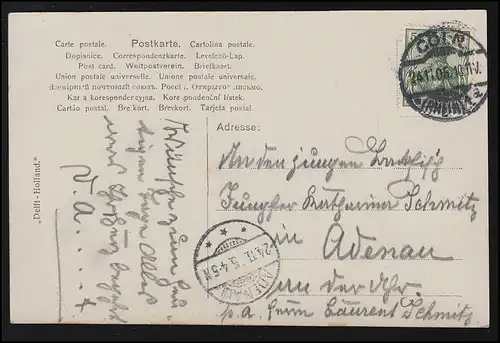 Carte postale. Postkarte. Cartolina postale.
Dopisnice. Correspondenzkarte. Levelező-Lap.
Post card. Weltpostverein. Briefkaart.
Union postale universelle. Unione postale universale.
Всемірный почтовый союзъ. Россія. Открытое письмо.
Karta korespondencyjna. Korespondenční lístek.
Cartão postal. Brevkort. Brevkort. Tarjeta postal.
CÖLN
24.11.05.
(RHEIN) 1
Adresse:
An den jungen
Jungherr Katharina Schmitz
in Adenau
an der Ahr
p.a. Herrn Laurent Schmitz
Wünsche zum heu-
tigen Tage alles
ADENAU
24.11.05.4-5N
„Delft-Holland."